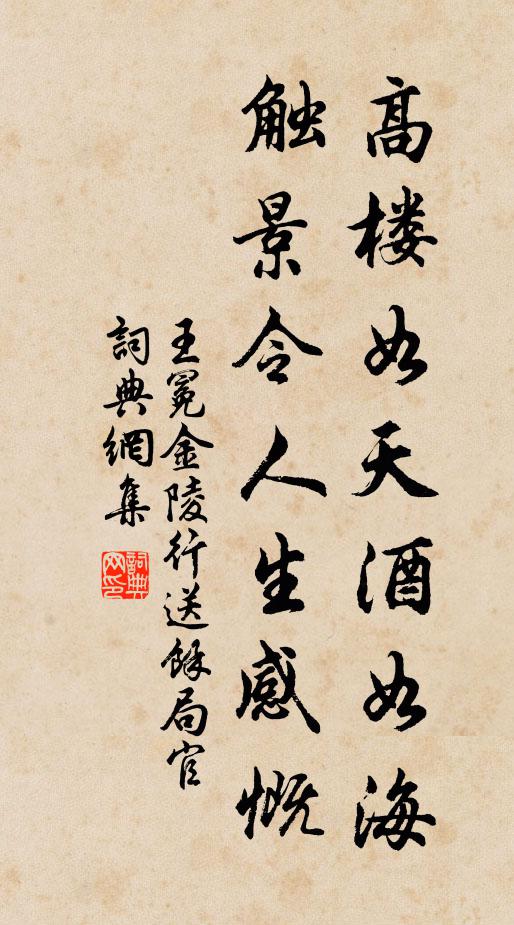 高楼如天酒如海
触景令人生感慨
王冕金陵行送馀局官
詞典網集
詞典
网印